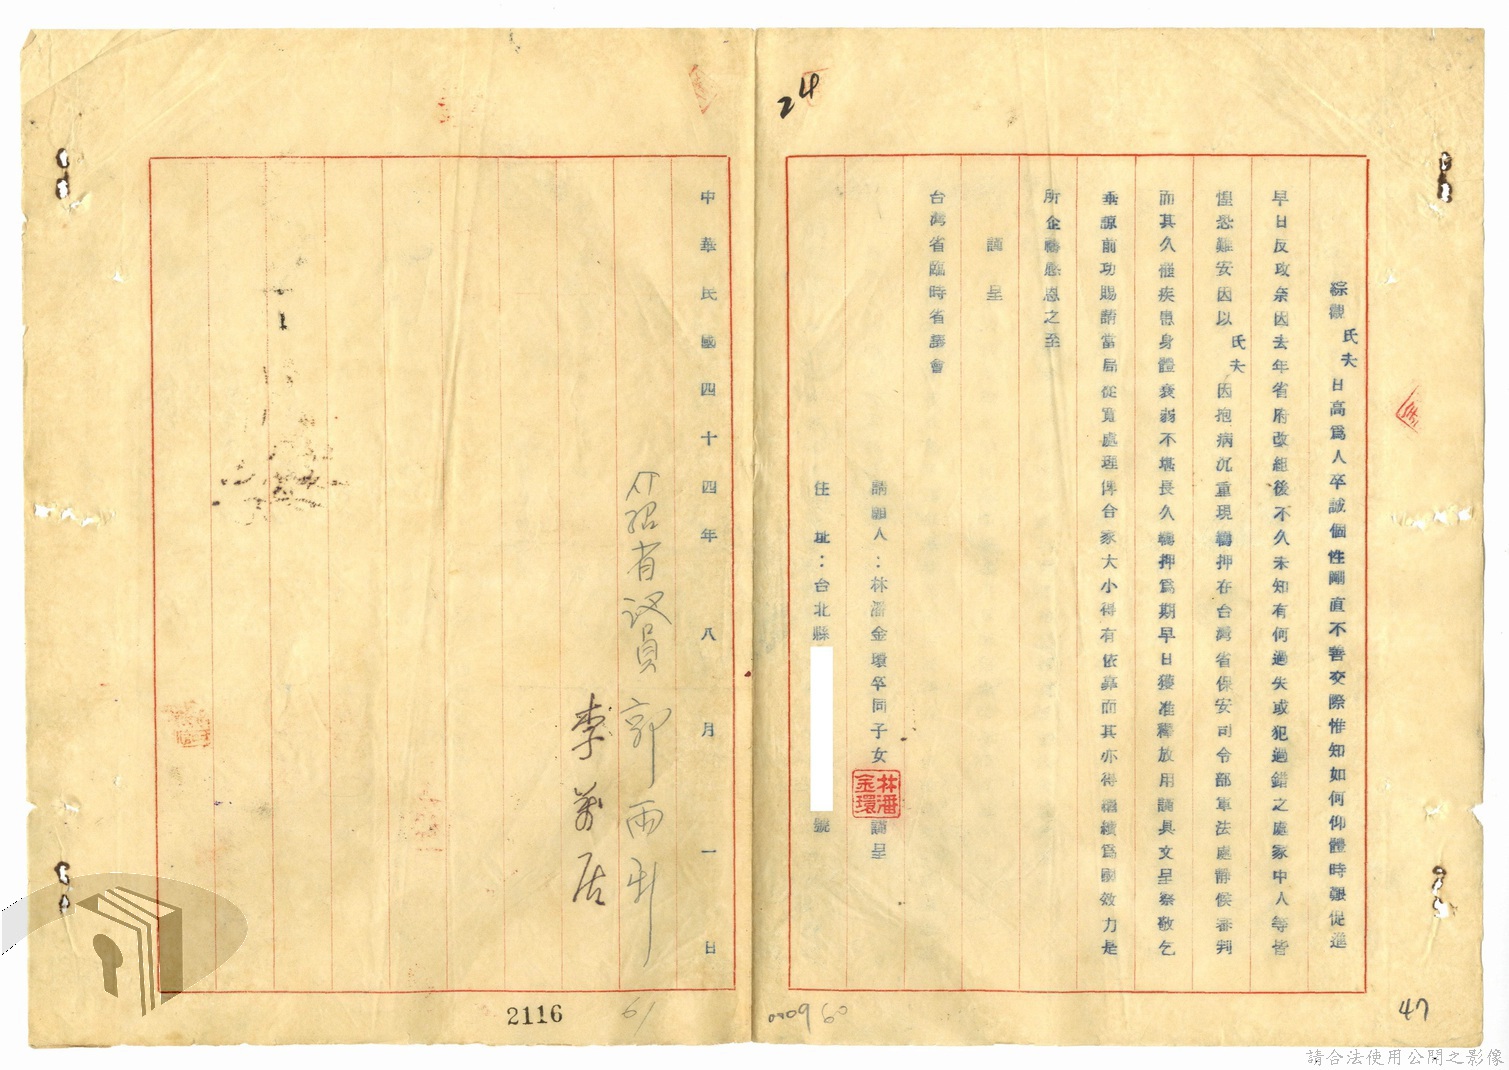 24
綜觀氏夫日高為人卒誠個性剛直不善交際惟知如何仰體時艱促進
早日反攻奈因去年省府改組後不久未知有何過失或犯過錯之處家中人等皆
惶恐難安因以氏夫因抱病沉重現羈押在台灣省保安司令部軍法處靜候審判
而其久罹疾患身體衰弱不堪長久羈押為期早日獲准釋放用謹具文呈察敬乞
垂諒前功賜請當局從寬處理俾合家大小得有依靠而其亦得繼續為國效力是
所企禱懇恩之至
謹呈
台灣省臨時省議會
請願人：林潘金環率同子女 謹呈
林潘金環
住址：台北縣 號
中華民國四十四年八月一日
介紹省議員 郭雨新
李萬居
2116
61
0709
60
47
請合法使用公開之影像